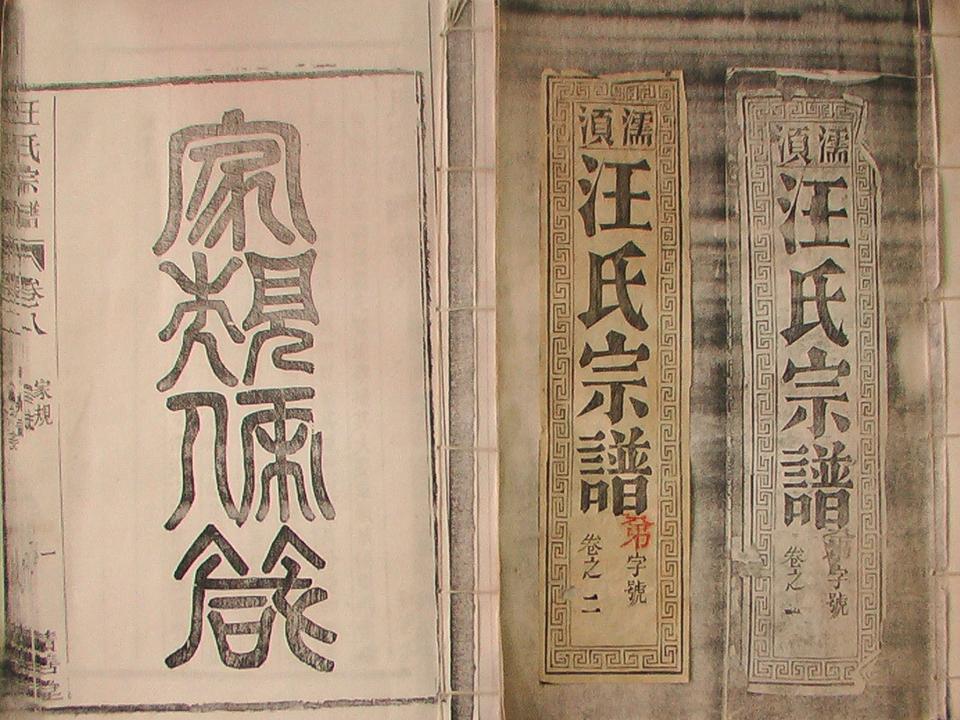 濡湏
汪氏宗譜
字號
卷之一
濡湏
汪氏宗譜
字號
卷之二
家規
汪氏宗譜
卷八
家規
一